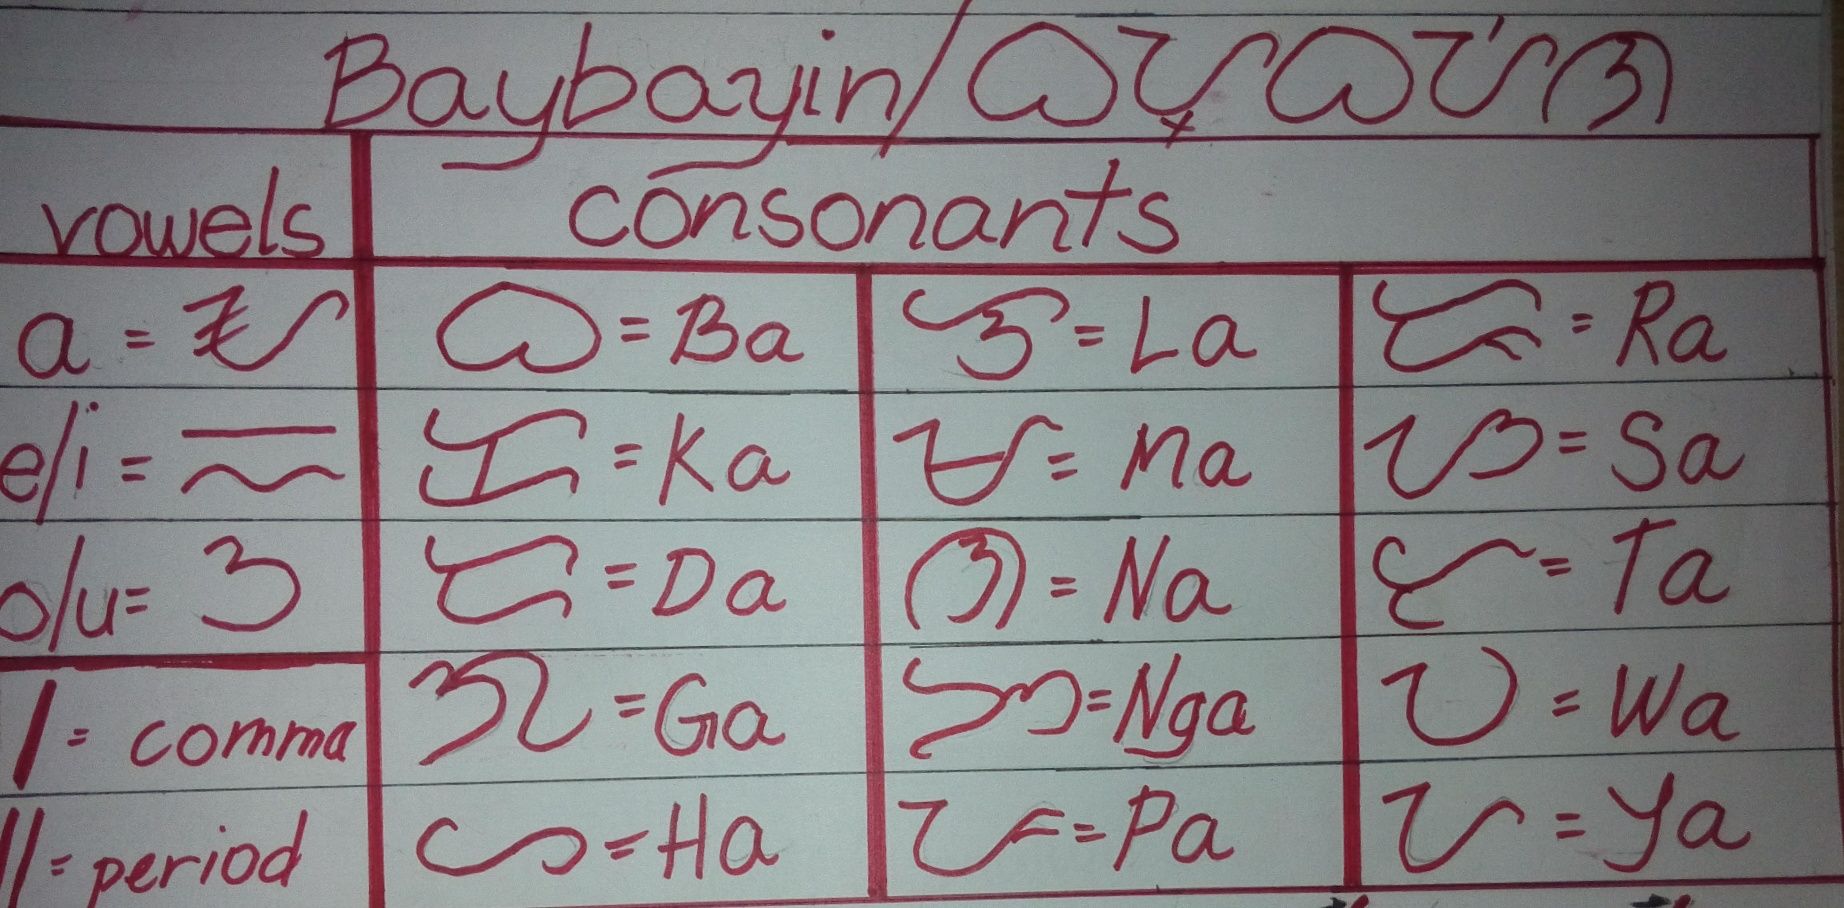 Baybayin/ᜊᜌ᜔ᜊᜌᜒᜈ
vowels consonants
a = ᜀ ᜊ = Ba ᜎ = La ᜍ = Ra
e/i = ᜁ ᜃ = Ka ᜋ = Ma ᜐ = Sa
o/u = ᜂ ᜇ = Da ᜈ = Na ᜆ = Ta
| = comma ᜄ = Ga ᜅ = Nga ᜏ = Wa
|| = period ᜑ = Ha ᜉ = Pa ᜌ = Ya